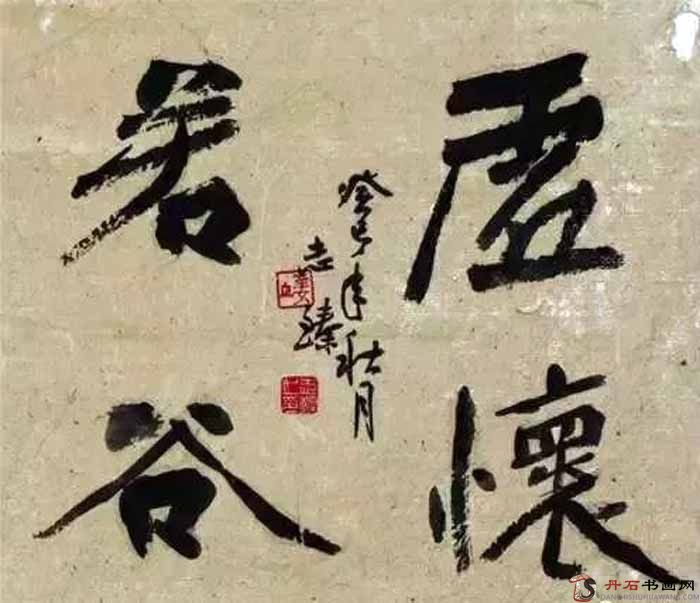 虚懷
若谷
癸巳年秋月
志臻
丹石书画网
DANSHISHUHUAWANG.COM